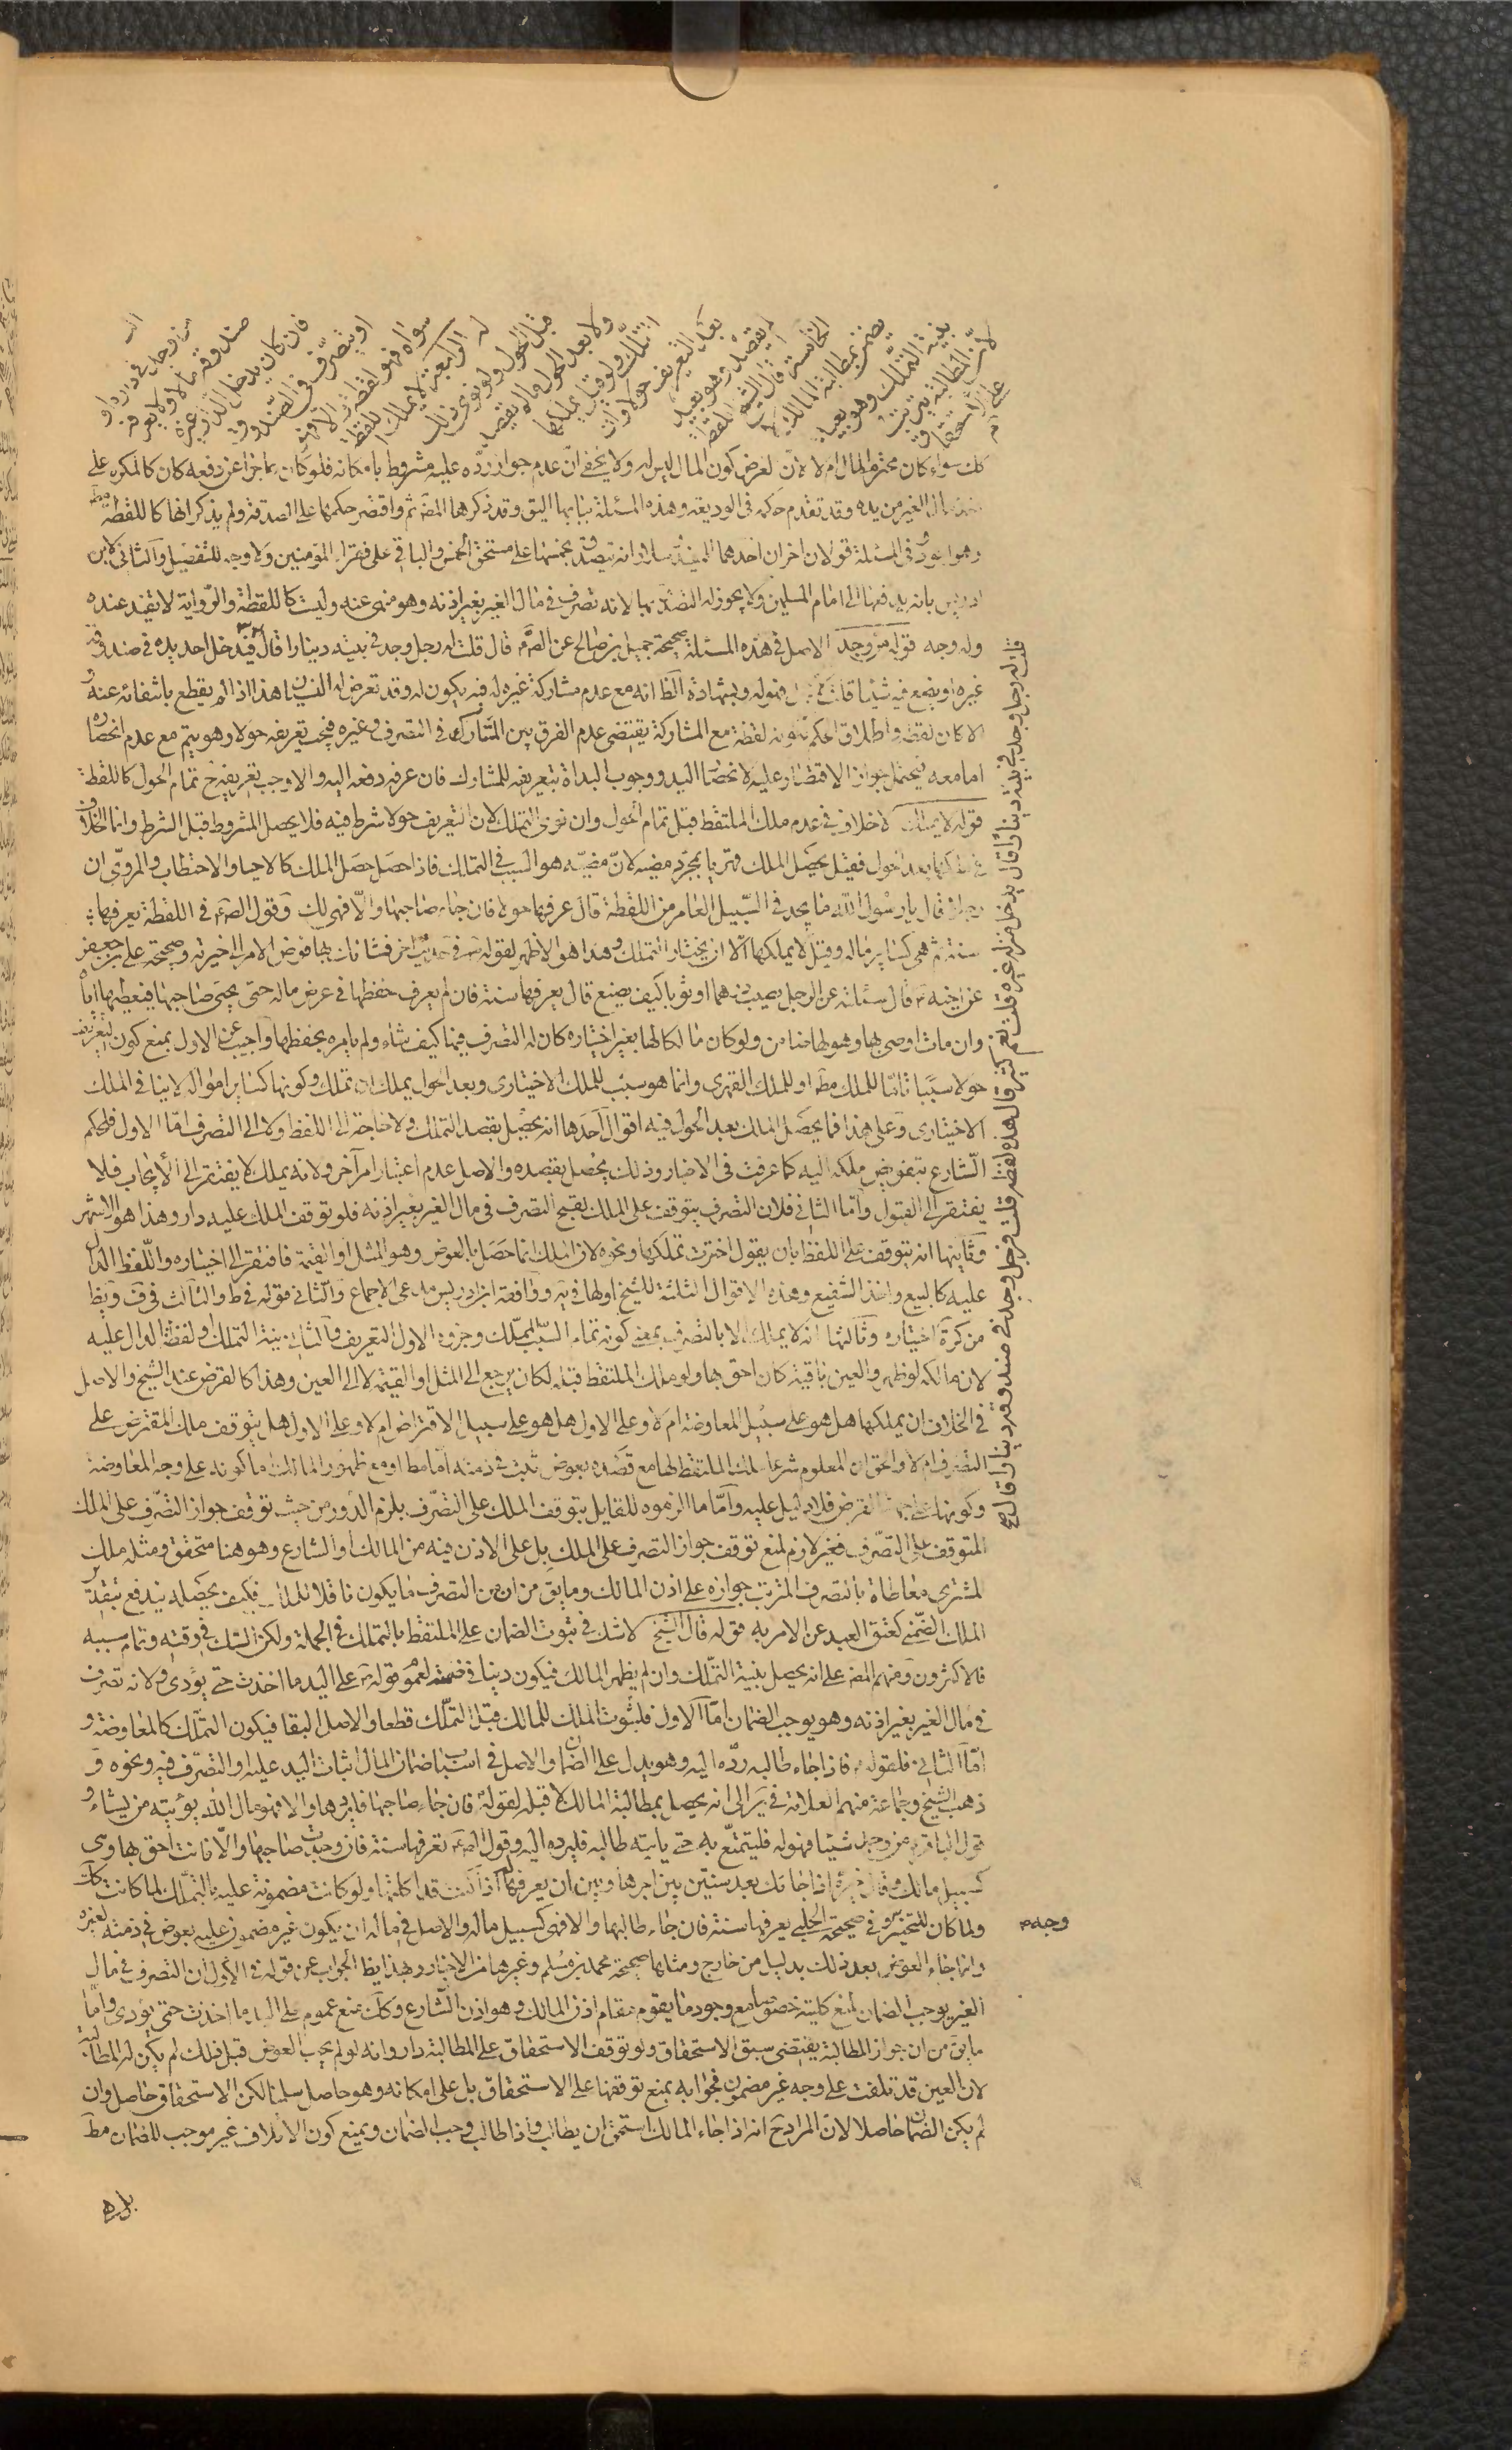 كك سواء كان محترم المال ام لا لان لغرض كون المال ليس له ولا يخفى ان عدم جواز رده عليه مشروط بامكانه فلو كان عاجزا عن دفعه كان كالمكره على
الغير من يده وقد تقدم حكمه في الوديعة وهذه المسئلة ببابها اليق وقد ذكرها المصَ ثم واقتصر حكمها على الصدقة ولم يذكر انها كاللقطة
وهو اجود وفي المسئلة قولان اخران احدهما للمفيد وسلار انه يتصدق بخمسها على مستحق الخمس والباقي على فقراء المؤمنين ولا وجه للتفصيل والثاني لابن
ادريس بانه يدفعها الى امام المسلمين ولا يجوز له التصدق بها لانه تصرف في مال الغير بغير اذنه وهو منهى عنه وليست كاللقطة والرواية لا تفيد عنده
وله وجه قوله من وجد الاصل في هذه المسئلة صحيحة جميل بن صالح عن الصَ م قال قلت له رجل وجد في بيته دينارا قال فيدخل احد يده في صندوقه
غيره او يضع فيه شيئا قلت لا قال فهو له وبشهادة الظ انه مع عدم مشاركة غيره له فيه يكون له وقد تعرض له النسيان هذا اذا لم يقطع بانتفائه عنه و
الا كان لقطة واطلاق الحكم بكونه لقطة مع المشاركة يقتضى عدم الفرق بين المشارك في التصرف وغيره فيجب تعريفه حولا وهو يتم مع عدم انحصاره
اما معه فيحتمل جواز الاقتصار عليه لانحصار اليد ووجوب البداة بتعريفه للمشارك فان عرفه دفعه اليه والا وجب تعريفه ح تمام الحول كاللقطة
قوله لا يملك لا خلاف في عدم ملك الملتقط قبل تمام الحول وان نوى التملك لان التعريف حولا شرط فيه فلا يحصل المشروط قبل الشرط وانما الخلاف
في تملكها بعد الحول فقيل يحصل الملك قهريا بمجرد مضيه لان مضيه هو السبب في التملك فاذا حصل حصل الملك كالاحياء والاحتطاب والمروى ان
رجلا قال يا رسول الله ما يجد في السبيل العامر من اللقطة قال عرفها حولا فان جاء صاحبها والا فهى لك وقول الصَ م في اللقطة يعرفها
سنة ثم هي كسائر ماله وقيل لا يملكها الا ان يختار التملك وهذا هو الاظهر لقوله في حديث اخر فشانك بها فوض الامر الى خيرته وصحيحة على بن جعفر
عن اخيه م قال سئلته عن الرجل يصيب درهما او ثوبا كيف يصنع قال يعرفها سنة فان لم يعرف حفظها في عرض ماله حتى يجئ صاحبها فيعطيها اياه
وان مات اوصى بها وهو لها ضامن ولو كان مالكا لها بغير اختياره كان له التصرف فيها كيف شاء ولم يامره بحفظها واجيب عن الاول بمنع كون التعريف
حولا سببا تاما للملك مطَ او للملك القهرى وانما هو سبب للملك الاختيارى وبعد الحول يملك ان تملك وكونها كسائر امواله لا ينافى الملك
الاختيارى وعلى هذا فما يحصل الملك بعد الحول فيه اقوال احدها انه يحصل بقصد التملك ولا حاجة الى اللفظ ولا الى التصرف اما الاول فلحكم
الشارع بتفويض ملكه اليه كما عرفت في الاخبار وذلك يحصل بقصده والاصل عدم اعتبار امر آخر ولانه يملك لا يفتقر الى الايجاب فلا
يفتقر الى القبول واما الثاني فلان التصرف يتوقف على الملك لقبح التصرف في مال الغير بغير اذنه فلو توقف الملك عليه دار وهذا هو الاشهر
وثانيها انه يتوقف على اللفظ بان يقول اخترت تملكها ونحوه لان الملك انما حصل بالعوض وهو المثل او القيمة فافتقر الى اختياره واللفظ الدال
عليه كالبيع واخذ الشفيع وهذه الاقوال الثلثة للشيخ اولها في يه ووافقه ابن ادريس مدعى الاجماع والثاني قوله في ط والثالث في ف ويظ
من كره اختياره وثالثها انه لا يملك الا بالتصرف بمعنى كونه تمام السبب المملك وجزوه الاول التعريف والثاني نية التملك او لفظه الدال عليه
لان مالكه لو ظهر والعين باقية كان احق بها ولو ملك الملتقط قبله لكان يرجع الى المثل او القيمة لا الى العين وهذا كالقرض عند الشيخ والاصل
في الخلاف ان يملكها هل هو على سبيل المعاوضة ام لا وعلى الاول هل هو على سبيل الاقتراض ام لا وعلى الاول هل يتوقف ملك المقترض على
التصرف ام لا والحق ان المعلوم شرعا ملك الملتقط لها مع قصده بعوض يثبت في ذمته اما مطَ او مع ظهور المالك اما كونه على وجه المعاوضة
وكونها على جهة القرض فلا دليل عليه واما ما الزموه للقايل بتوقف الملك على التصرف بلزم الدور من حيث توقف جواز التصرف على الملك
المتوقف على التصرف فغير لازم لمنع توقف جواز التصرف على الملك بل على الاذن فيه من المالك او الشارع وهو هنا متحقق ومثله ملك
المشترى معاطاة بالتصرف المترتب جوازه على اذن المالك وما بق من ان من التصرف ما يكون ناقلا للملك فكيف يحصله يندفع بتقدير
الملك الضمنى كعتق العبد عن الامر به قوله قال الشيخ لا شك في ثبوت الضمان على الملتقط بالتملك في الجملة ولكن الشك في وقته وتمام سببه
فالاكثرون ومنهم المصَ على انه يحصل بنية التملك وان لم يظهر المالك فيكون دينا في ذمته لعموم قوله م على اليد ما اخذت حتى يؤدى ولانه تصرف
في مال الغير بغير اذنه وهو يوجب الضمان اما الاول فلثبوت الملك للمالك قبل التملك قطعا والاصل البقا فيكون التملك كالمعاوضة و
اما الثاني فلقوله م فاذا جاء طالبه رده اليه وهو يدل على الضمان والاصل في اسباب ضمان المال اثبات اليد عليه او التصرف فيه ونحوه و
ذهب الشيخ وجماعة منهم العلامة في ير الى انه يحصل بمطالبة المالك لا قبله لقوله فان جاء صاحبها فليردها والا فهو مال الله يؤتيه من يشاء و
قول الباقر م من وجد شيئا فهو له فليتمتع به حتى ياتيه طالبه فليرده اليه وقول الصَ م تعرفها سنة فان وجدت صاحبها والا فانت احق بها وهي
كسبيل مالك وقال خيره اذا جاءك بعد سنتين بين اجرها وبين ان يغرمها له اذا كنت قد اكلتها ولو كانت مضمونة عليه بالتملك لما كانت كك
ولما كان للتخيير وفي صحيحة الحلبى يعرفها سنة فان جاء طالبها والا فهى كسبيل ماله والاصل في ماله ان يكون غير مضمون عليه بعوض في ذمته لغيره
وجه م
وانما جاء العوض بعد ذلك بدليل من خارج ومثلها صحيحة محمد بن مسلم وغيرها من الاخبار وبهذا يظ الجواب عن قوله في الاول ان التصرف في مال
الغير يوجب الضمان لمنع كليته خصوصا مع وجود ما يقوم مقام اذن المالك وهو اذن الشارع وكك بمنع عموم على اليد ما اخذت حتى يؤدى واما
ما بق من ان جواز المطالبة يقتضى سبق الاستحقاق ولو توقف الاستحقاق على المطالبة دار وانه لو لم يجب العوض قبل ذلك لم يكن له المطالبة
لان العين قد تلفت على وجه غير مضمون فجوابه بمنع توقفها على الاستحقاق بل على امكانه وهو حاصل سلمنا لكن الاستحقاق حاصل وان
لم يكن الضمان حاصلا لان المراد ح انه اذا جاء المالك استحق ان يطالب واذا طالب وجب الضمان وبمنع كون الاتلاف غير موجب للضمان مطَ
قلت له رجل وجد في بيته دينارا قال يدخل منزله غيره قلت نعم كثير قال هذه لقطة قلت فرجل وجد في صندوقه دينارا قال
صندوقه مالا ولا يعرفه
فان كان يدخل الدار غيره
او يتصرف في الصندوق
سواه فهو لقطة والا فهو
له الرابعة لا يملك اللقطة
قبل الحول ولو نوى ذلك
ولا بعد الحول ما لم يقصد
التملك وقيل يملكها
بعد التعريف حولا وان
لم يقصد وهو بعيد
الخامسة قال الشيخ اللقطة
يضمن بمطالبة المالك لا
بنية التملك وهو بعيد
لان المطالبة تترتب
على الاستحقاق